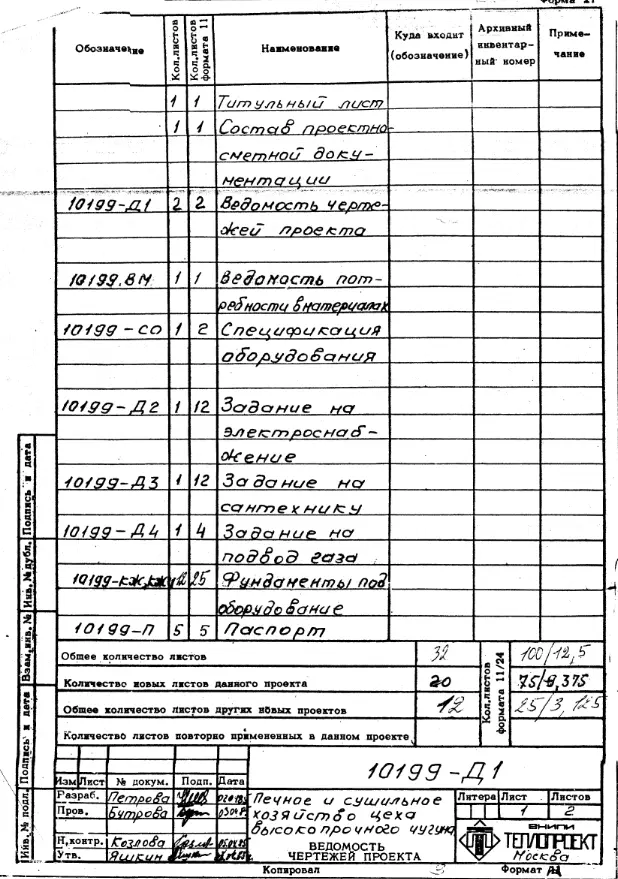 Форма 21
Обозначение Кол.листов Кол.листов формата 11 Наименование Куда входит (обозначение) Архивный инвентарный номер Примечание
1 1 Титульный лист
1 1 Состав проектно-
сметной доку-
ментации
10199-Д1 2 2 Ведомость черте-
жей проекта
10199.ВМ 1 1 Ведомость пот-
ребности в материалах
10199-СО 1 2 Спецификация
оборудования
10199-Д2 1 12 Задание на
электроснаб-
жение
10199-Д3 1 12 Задание на
сантехнику
10199-Д4 1 4 Задание на
подвод газа
10199-КЖ,КЖ 12 25 Фундаменты под
оборудование
10199-П 5 5 Паспорт
Общее количество листов 32
Количество новых листов данного проекта 20
Общее количество листов других новых проектов 12
Количество листов повторно примененных в данном проекте
Кол.листов формата 11/24
100/12,5
75/9,375
25/3,125
Инв.№ подл. Подпись и дата Взам.инв.№ Инв.№ дубл. Подпись и дата
10199-Д1
Изм Лист № докум. Подп. Дата
Разраб. Петрова
Пров. Бутрова
Н.контр. Козлова
Утв. Яшкин
Печное и сушильное
хозяйство цеха
высокопрочного чугуна
ВЕДОМОСТЬ
ЧЕРТЕЖЕЙ ПРОЕКТА
Литера Лист Листов
1 2
ВНИПИ
ТЕПЛОПРОЕКТ
Москва
Копировал Формат